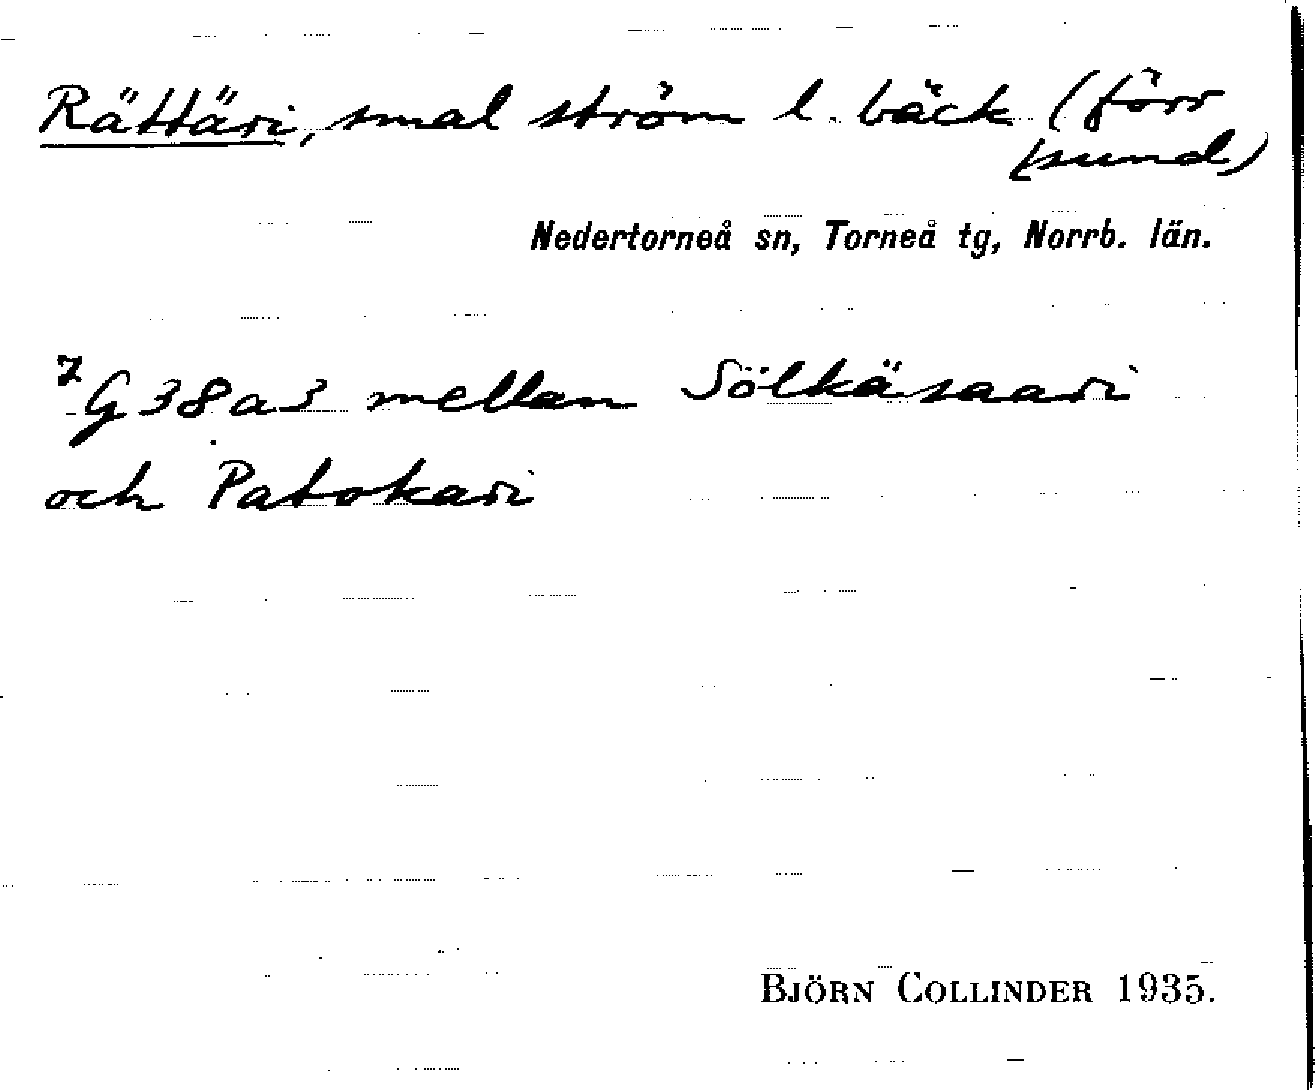 Rättäri, smal ström l. bäck (förr
sund)
Nedertorneå sn, Torneå tg, Norrb. län.
7 G38a3 mellan Sölkäsaari
och Patokari
BJÖRN COLLINDER 1935.